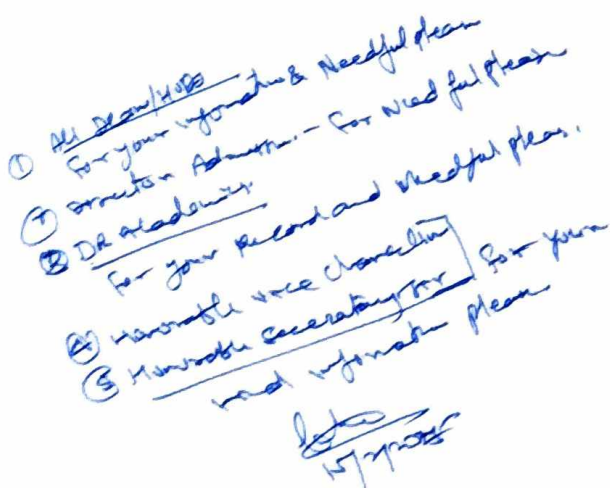 ① All Dean/HODs
For your information & Needful please
② Director Admission - For Needful please
③ DR Academics.
For your Record and Needful please.
④ Honorable Vice Chancellor
⑤ Honorable Secretary Sir for your
kind information please